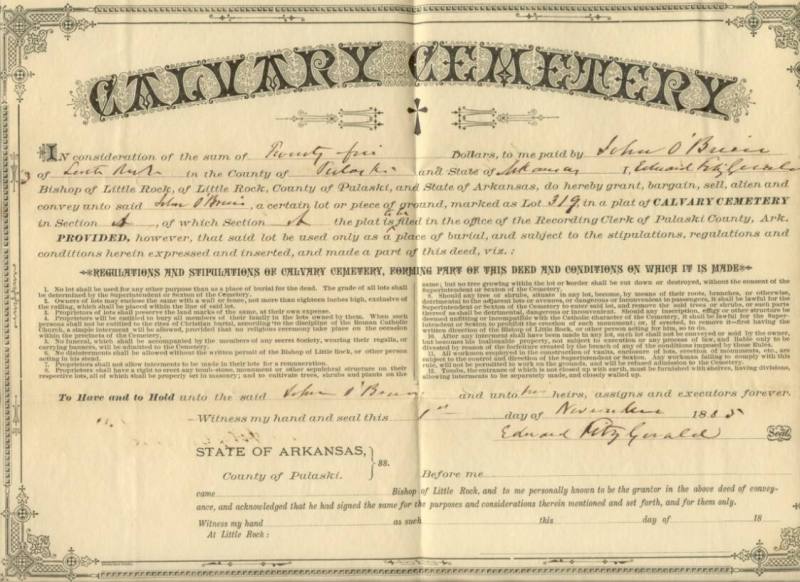 CALVARY CEMETERY
IN consideration of the sum of Twenty five Dollars, to me paid by John O'Brien
of Little Rock in the County of Pulaski and State of Arkansas I, Edward Fitz Gerald
Bishop of Little Rock, of Little Rock, County of Pulaski, and State of Arkansas, do hereby grant, bargain, sell, alien and
convey unto said John O'Brien, a certain lot or piece of ground, marked as Lot 319 in a plat of CALVARY CEMETERY
in Section A, of which Section A the plat to be filed in the office of the Recording Clerk of Pulaski County, Ark.
PROVIDED, however, that said lot be used only as a place of burial, and subject to the stipulations, regulations and
conditions herein expressed and inserted, and made a part of this deed, viz.:
REGULATIONS AND STIPULATIONS OF CALVARY CEMETERY, FORMING PART OF THIS DEED AND CONDITIONS ON WHICH IT IS MADE
1. No lot shall be used for any other purpose than as a place of burial for the dead. The grade of all lots shall
be determined by the Superintendent or Sexton of the Cemetery.
2. Owners of lots may enclose the same with a wall or fence, not more than eighteen inches high, exclusive of
the railing, which shall be placed within the line of said lot.
3. Proprietors of lots shall preserve the land marks of the same, at their own expense.
4. Proprietors will be entitled to bury all members of their family in the lots owned by them. When such
persons shall not be entitled to the rites of Christian burial, according to the discipline of the Roman Catholic
Church, a simple interment will be allowed, provided that no religious ceremony take place on the occasion
within the precincts of the Cemetery.
5. No funeral, which shall be accompanied by the members of any secret Society, wearing their regalia, or
carrying banners, will be admitted to the Cemetery.
6. No disinterments shall be allowed without the written permit of the Bishop of Little Rock, or other person
acting in his stead.
7. Proprietors shall not allow interments to be made in their lots for a remuneration.
8. Proprietors shall have a right to erect any tomb-stone, monument or other sepulchral structure on their
respective lots, all of which shall be properly set in masonry; and to cultivate trees, shrubs and plants on the
same; but no tree growing within the lot or border shall be cut down or destroyed, without the consent of the
Superintendent or Sexton of the Cemetery.
9. Should any tree or shrubs, situate in any lot, become, by means of their roots, branches, or otherwise,
detrimental to the adjacent lots or avenues, or dangerous or inconvenient to passengers, it shall be lawful for the
Superintendent or Sexton of the Cemetery to enter said lot, and remove the said trees or shrubs, or such parts
thereof as shall be detrimental, dangerous or inconvenient. Should any inscription, effigy or other structure be
deemed unfitting or incompatible with the Catholic character of the Cemetery, it shall be lawful for the Super-
intendent or Sexton to prohibit the erection of such monument; or, if erected, to remove it—first having the
written direction of the Bishop of Little Rock, or other person acting for him, so to do.
10. After any remains shall have been interred in any lot, the same cannot be sold by the owner,
but becomes his inalienable property, not subject to execution or any process of law, and liable only to be
divested by reason of the forfeiture created by the breach of any of the conditions imposed by those Rules.
11. All workmen employed in the construction of vaults, enclosure of lots, erection of monuments, etc., are
subject to the control and direction of the Superintendent or Sexton. Any workman failing to comply with this
rule, will not be permitted to work in the grounds, and will be refused admission to the Cemetery.
12. Tombs, the entrance of which is not closed up with earth, must be furnished with shelves, having divisions,
allowing interments to be separately made, and closely walled up.
To Have and to Hold unto the said John O'Brien and unto his heirs, assigns and executors forever.
Witness my hand and seal this 1st day of November 1885
Edward Fitz Gerald Seal
STATE OF ARKANSAS,
County of Pulaski. ss.
Before me
came Bishop of Little Rock, and to me personally known to be the grantor in the above deed of convey-
ance, and acknowledged that he had signed the same for the purposes and considerations therein mentioned and set forth, and for them only.
Witness my hand as such this day of 18
At Little Rock: